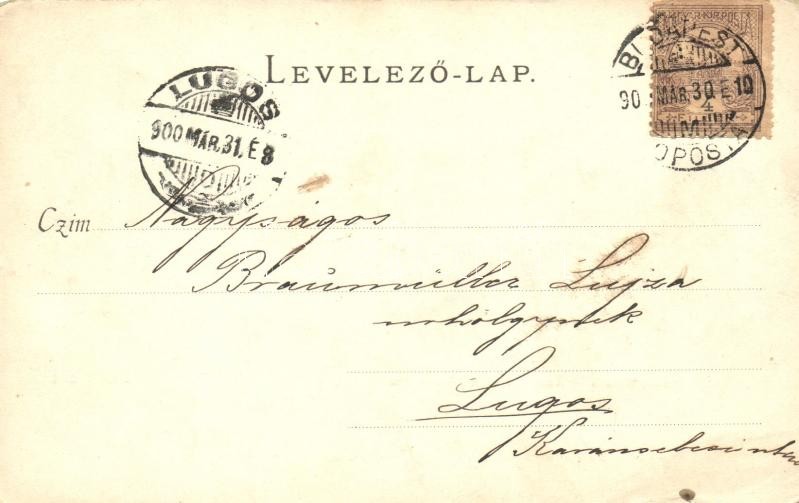 LEVELEZŐ-LAP.
MAGYAR KIR. POSTA
BUDAPEST
900 MÁR. 30 E 10
4
FŐPOSTA
LUGOS
900 MÁR. 31. É 8
Czim Nagyságos
Braunmüller Lujza
urhölgynek
Lugos
Karánsebesi utcza